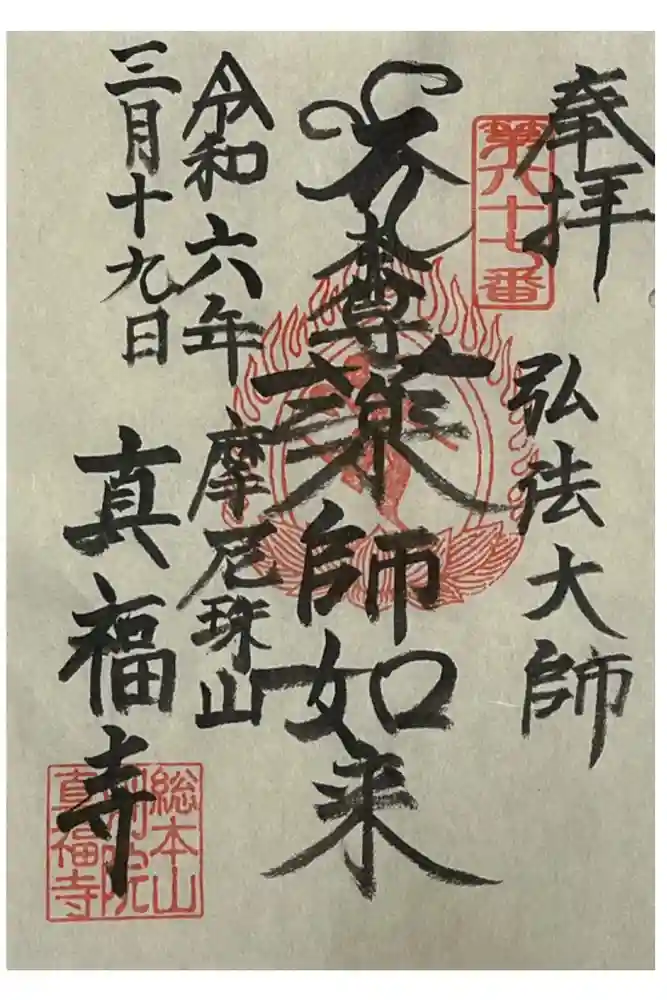 奉拝
弘法大師
第六十七番
本尊薬師如来
令和六年
摩尼珠山
三月十九日
真福寺
総本山
別院
真福寺